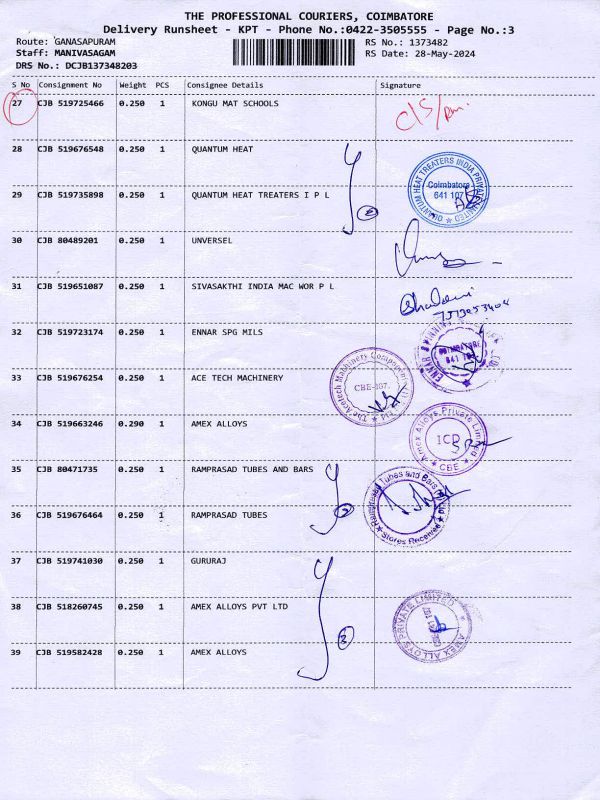 THE PROFESSIONAL COURIERS, COIMBATORE
Delivery Runsheet - KPT - Phone No.:0422-3505555 - Page No.:3
Route: GANASAPURAM RS No.: 1373482
Staff: MANIVASAGAM RS Date: 28-May-2024
DRS No.: DCJB137348203
S No Consignment No Weight PCS Consignee Details Signature
27 CJB 519725466 0.250 1 KONGU MAT SCHOOLS
28 CJB 519676548 0.250 1 QUANTUM HEAT
29 CJB 519735898 0.250 1 QUANTUM HEAT TREATERS I P L
QUANTUM HEAT TREATERS INDIA PRIVATE LIMITED
Coimbatore
641 107
2
30 CJB 80489201 0.250 1 UNVERSEL
31 CJB 519651087 0.250 1 SIVASAKTHI INDIA MAC WOR P L
32 CJB 519723174 0.250 1 ENNAR SPG MILS
ENNAR SPINNING
COIMBATORE
33 CJB 519676254 0.250 1 ACE TECH MACHINERY
The Acetech Machinery Components
CBE-107.
34 CJB 519663246 0.290 1 AMEX ALLOYS
Amex Alloys Private Limited
ICD
CBE
35 CJB 80471735 0.250 1 RAMPRASAD TUBES AND BARS
Ramprasad Tubes and Bars
Stores Received
2
36 CJB 519676464 0.250 1 RAMPRASAD TUBES
37 CJB 519741030 0.250 1 GURURAJ
38 CJB 518260745 0.250 1 AMEX ALLOYS PVT LTD
AMEX ALLOYS PRIVATE LIMITED
3
39 CJB 519582428 0.250 1 AMEX ALLOYS